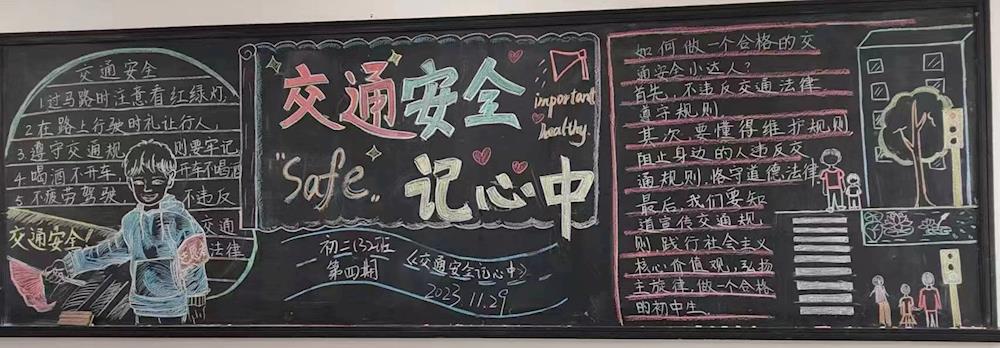 交通安全
1.过马路时注意看红绿灯,
2.在路上行驶时礼让行人,
3.遵守交通规 则要牢记
4.喝酒不开车, 开车不喝酒
5.不疲劳驾驶, 不违反
交通
法律
交通安全!
交通安全
记心中
"Safe"
important
healthy.
初二(32)班
第四期
《交通安全记心中》
2023.11.29
如何做一个合格的交
通安全小达人?
首先,不违反交通法律
遵守规则
其次,要懂得维护规则
阻止身边的人违反交
通规则,恪守道德法律
最后,我们要知
道宣传交通规
则践行社会主义
核心价值观,弘扬
主旋律.做一个合格
的初中生.